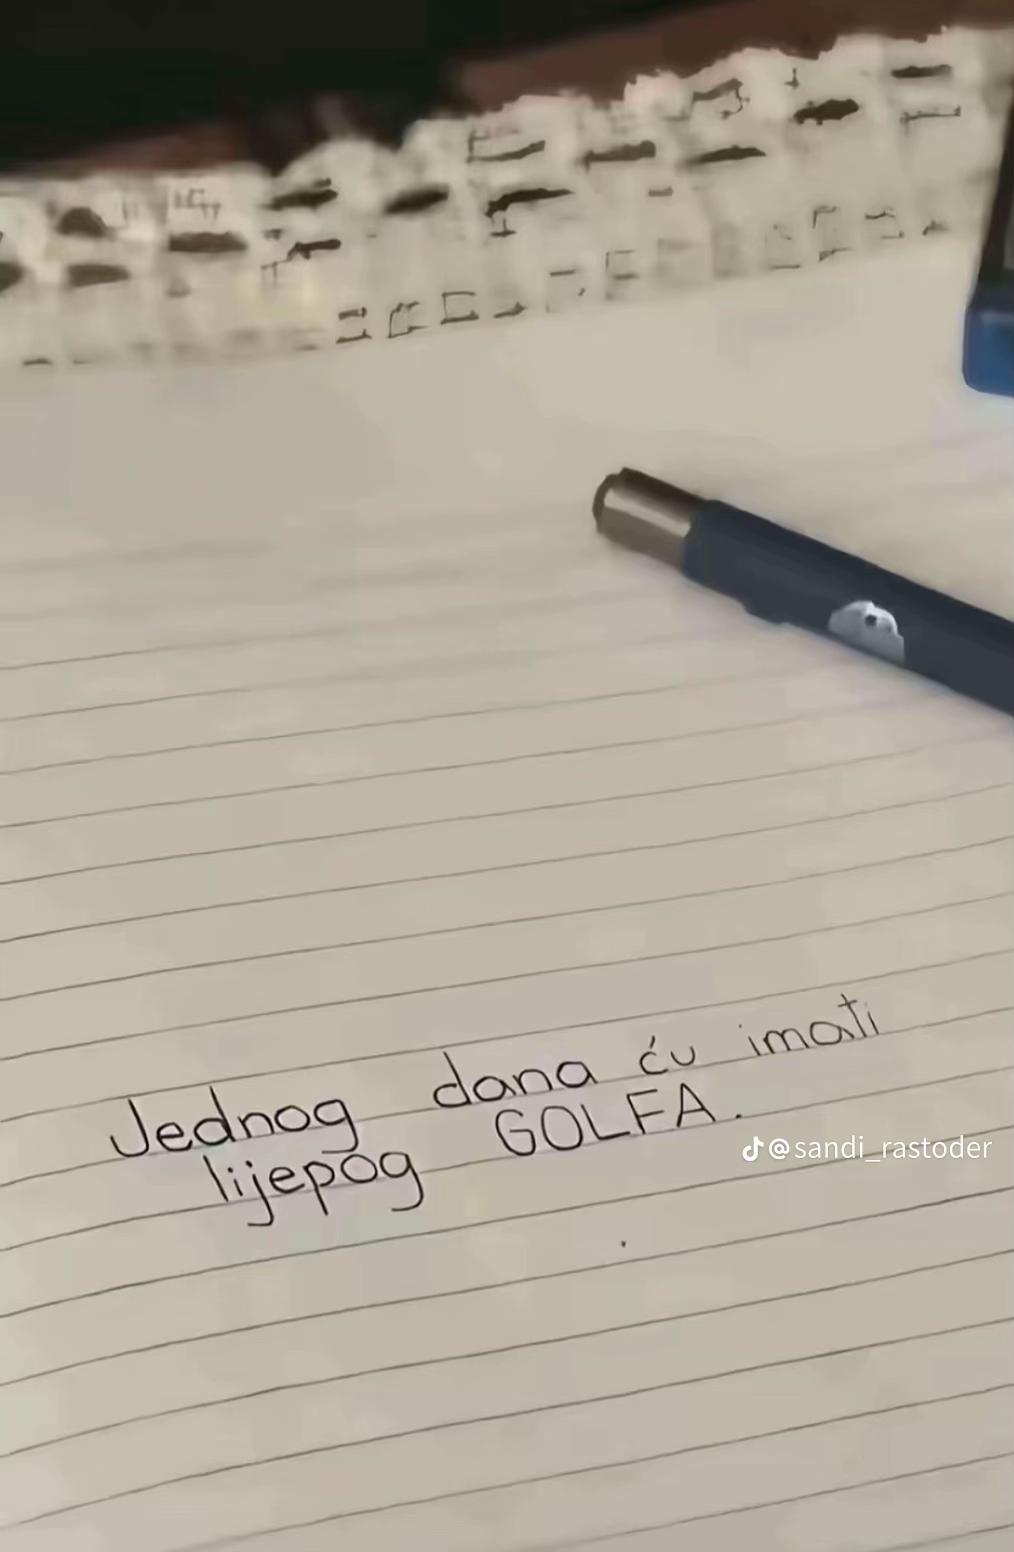 Jednog dana ću imati
lijepog GOLFA.
@sandi_rastoder